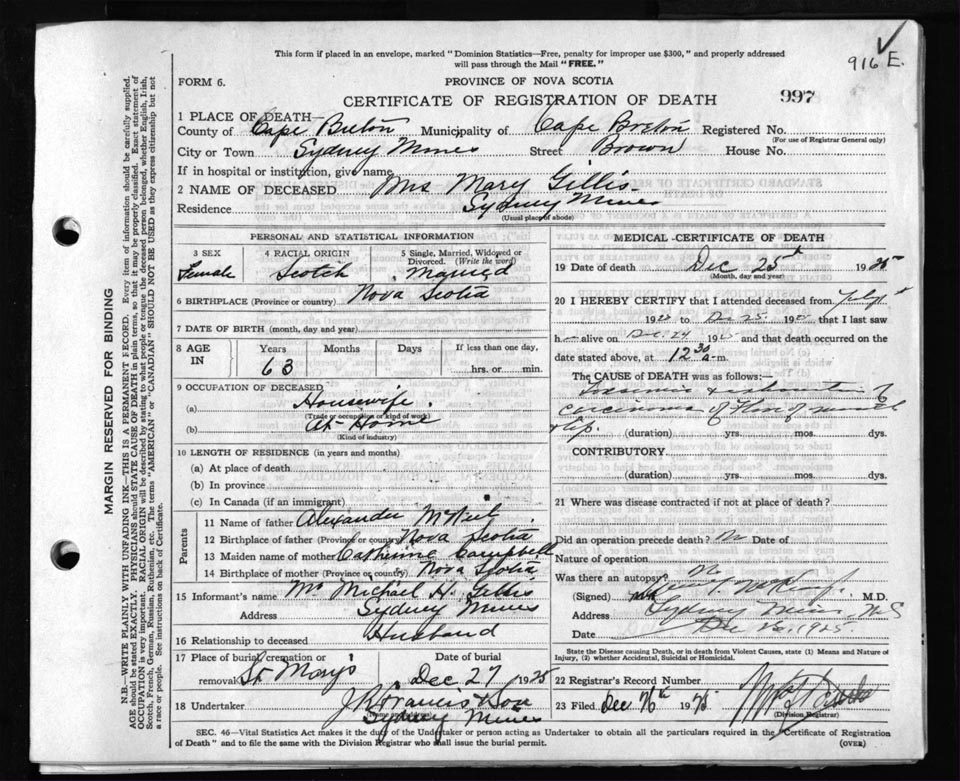 916 E.
This form if placed in an envelope, marked "Dominion Statistics—Free, penalty for improper use $300," and properly addressed
will pass through the Mail "FREE."
FORM 6.
PROVINCE OF NOVA SCOTIA
CERTIFICATE OF REGISTRATION OF DEATH
997
1 PLACE OF DEATH—
County of Cape Breton Municipality of Cape Breton Registered No.
(For use of Registrar General only)
City or Town Sydney Mines Street Brown House No.
If in hospital or institution, give name
2 NAME OF DECEASED Mrs Mary Gillis
Residence Sydney Mines
(Usual place of abode)
PERSONAL AND STATISTICAL INFORMATION
3 SEX
Female
4 RACIAL ORIGIN
Scotch
5 Single, Married, Widowed or
Divorced. (Write the word)
Married
6 BIRTHPLACE (Province or country) Nova Scotia
7 DATE OF BIRTH (month, day and year)
8 AGE
IN
Years
63
Months
Days
If less than one day,
hrs. or min.
9 OCCUPATION OF DECEASED
(a) Housewife
(Trade or occupation or kind of work)
(b) At Home
(Kind of industry)
10 LENGTH OF RESIDENCE (in years and months)
(a) At place of death
(b) In province
(c) In Canada (if an immigrant)
Parents
11 Name of father Alexander McNeil
12 Birthplace of father (Province or country) Nova Scotia
13 Maiden name of mother Catherine Campbell
14 Birthplace of mother (Province or country) Nova Scotia
15 Informant's name Mr Michael H. Gillis
Address Sydney Mines
16 Relationship to deceased Husband
17 Place of burial, cremation or
removal St Marys
Date of burial
Dec 27 1925
18 Undertaker J R Francis & Son
Sydney Mines
MEDICAL CERTIFICATE OF DEATH
19 Date of death Dec 25th 1925
(Month, day and year)
20 I HEREBY CERTIFY that I attended deceased from
19 to Dec 25 19 that I last saw
h alive on Dec. 24 19 and that death occurred on
the date stated above, at 12 30 a-m.
The CAUSE of DEATH was as follows:—
Toxaemia & exhaustion of
carcinoma of floor of mouth
& lip.
(duration) yrs. mos. dys.
CONTRIBUTORY
(duration) yrs. mos. dys.
21 Where was disease contracted if not at place of death?
Did an operation precede death? No Date of
Nature of operation
Was there an autopsy? No
(Signed) M.D.
Address Sydney Mines N.S
Date Dec 26, 1925.
State the Disease causing Death, or in death from Violent Causes, state (1) Means and Nature of
Injury, (2) whether Accidental, Suicidal or Homicidal.
22 Registrar's Record Number
23 Filed Dec 26th 1925
(Division Registrar)
SEC. 46—Vital Statistics Act makes it the duty of the Undertaker or person acting as Undertaker to obtain all the particulars required in the Certificate of Registration
of Death" and to file the same with the Division Registrar who shall issue the burial permit.
(OVER)
MARGIN RESERVED FOR BINDING
N.B.—WRITE PLAINLY WITH UNFADING INK—THIS IS A PERMANENT RECORD. Every item of information should be carefully supplied.
AGE should be stated EXACTLY. PHYSICIANS should STATE CAUSE OF DEATH in plain terms, so that it may be properly classified. Exact statement of
OCCUPATION is very important. RACIAL ORIGIN will be described by stating to what people or tongue the deceased person belonged, whether English, Irish,
Scotch, French, German, Russian, Ruthenian, etc. The terms "AMERICAN" or "CANADIAN" SHOULD NOT BE USED as they express citizenship but not
a race or people. See instructions on back of Certificate.